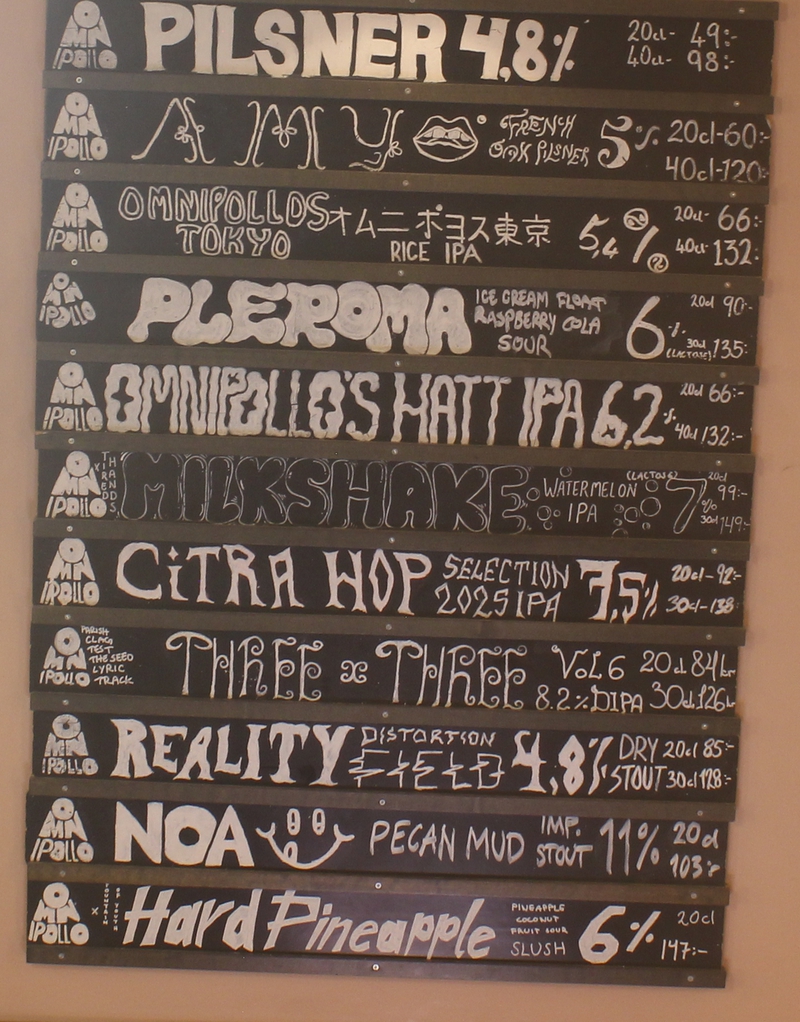 OMNIPOLLO PILSNER 4,8% 20cl- 49:-
40cl- 98:-
OMNIPOLLO AMY FRENCH OAK PILSNER 5% 20cl-60:-
40cl-120:-
OMNIPOLLO OMNIPOLLOS TOKYO オムニポヨス東京 RICE IPA 5,4% 20cl- 66:-
40cl- 132:-
OMNIPOLLO PLEROMA ICE CREAM FLOAT RASPBERRY COLA SOUR 6% (LACTOSE) 20cl 90:-
30cl 135:-
OMNIPOLLO OMNIPOLLO'S HATT IPA 6,2% 20cl 66:-
40cl 132:-
OMNIPOLLO X TIRED HANDS MILKSHAKE WATERMELON IPA (LACTOSE) 7% 20cl 99:-
30cl 149:-
OMNIPOLLO CiTRA HOP SELECTION 2025 IPA 7,5% 20cl-92:-
30cl-138:-
OMNIPOLLO PARISH CLAG TEST THE SEED LYRIC TRACK THREE x THREE VOL 6 8.2% DIPA 20cl 84kr
30cl 126kr
OMNIPOLLO REALITY DISTORTION FIELD 4,8% DRY STOUT 20cl 85:-
30cl 128:-
OMNIPOLLO NOA PECAN MUD IMP. STOUT 11% 20cl
103:-
OMNIPOLLO x FOUNTAIN OF YOUTH Hard Pineapple PINEAPPLE COCONUT FRUIT SOUR SLUSH 6% 20cl
147:-